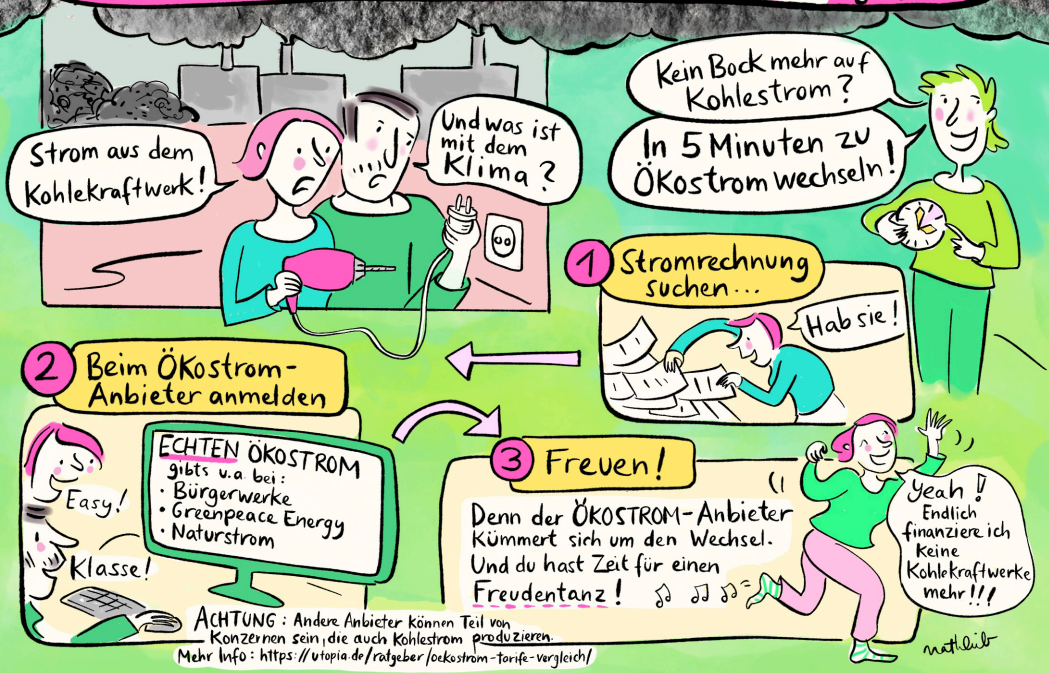 Strom aus dem
Kohlekraftwerk!
Und was ist
mit dem
Klima?
Kein Bock mehr auf
Kohlestrom?
In 5 Minuten zu
Ökostrom wechseln!
1 Stromrechnung
suchen...
Hab sie!
2 Beim Ökostrom-
Anbieter anmelden
ECHTEN ÖKOSTROM
gibts u.a. bei:
• Bürgerwerke
• Greenpeace Energy
• Naturstrom
Easy!
Klasse!
3 Freuen!
Denn der ÖKOSTROM-Anbieter
kümmert sich um den Wechsel.
Und du hast Zeit für einen
Freudentanz!
Yeah!
Endlich
finanziere ich
keine
Kohlekraftwerke
mehr!!!
ACHTUNG: Andere Anbieter können Teil von
Konzernen sein, die auch Kohlestrom produzieren.
Mehr Info: https://utopia.de/ratgeber/oekostrom-tarife-vergleich/